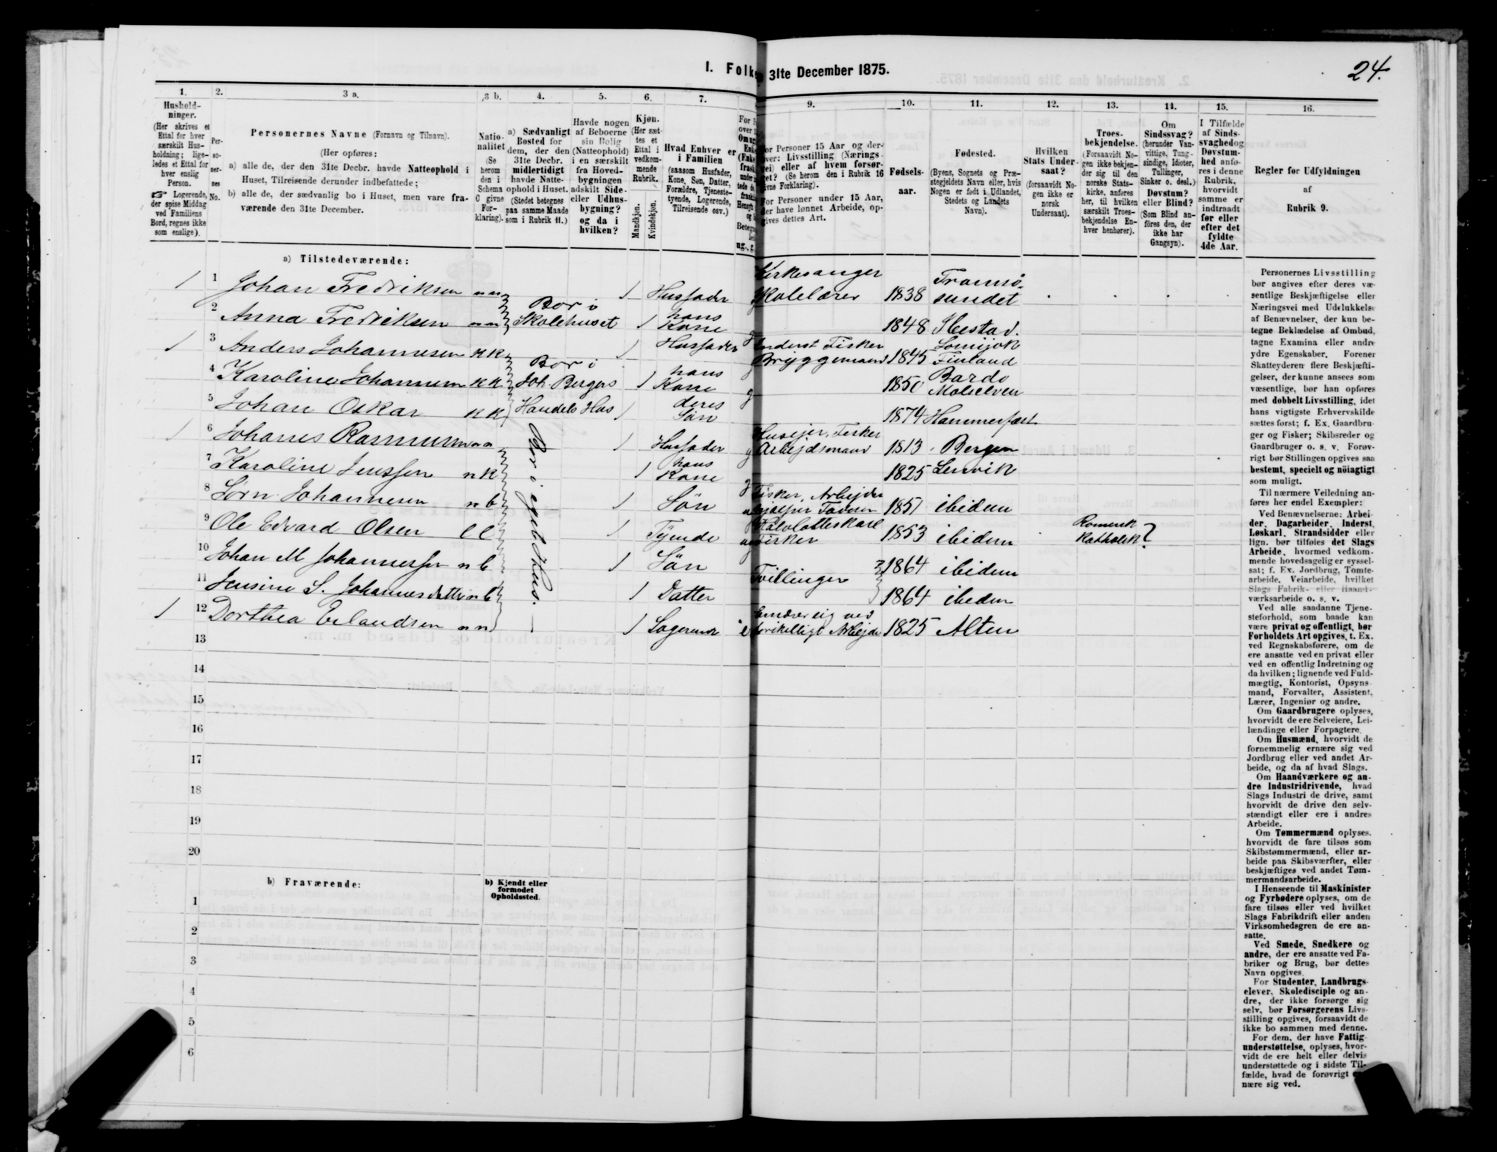 24.
I. Folke
31te December 1875.
1.
Hushold-
ninger.
(Her skrives et
Ettal for hver
særskilt Hus-
holdning; lige-
ledes et Ettal for
hver enslig
Person.
Logerende,
der spise Middag
ved Familiens
Bord, regnes ikke
som enslige).
2.
Per-
so-
ner-
nes
No.
3 a.
Personernes Navne (Fornavn og Tilnavn).
(Her opføres:
a) alle de, der den 31te Decbr. havde Natteophold i
Huset, Tilreisende derunder indbefattede;
b) alle de, der sædvanlig bo i Huset, men vare fra-
værende den 31te December.
3 b.
Natio-
nalitet
(Se
herom
den i
Schema
C givne
For-
klaring).
4.
a) Sædvanligt
Bosted for
dem, der den
31te Decbr.
midlertidigt
havde Natte-
ophold i Huset.
(Stedet betegnes
paa samme Maade
som i Rubrik 11.)
5.
Havde nogen
af Beboerne
sin Bolig
(Natteophold)
i en særskilt
fra Hoved-
bygningen
adskilt Side-
eller Udhus-
bygning?
og da i
hvilken?
6.
Kjøn.
(Her sæt-
tes et
Ettal i
vedkom-
mende
Rubrik.
Mandkjøn.
Kvindekjøn.
7.
Hvad Enhver er
i Familien
(saasom Husfader,
Kone, Søn, Datter,
Forældre, Tjeneste-
tyende, Logerende,
Tilreisende osv.)
9.
10.
Fødsels-
aar.
11.
Fødested.
(Byens, Sognets og Præ-
stegjeldets Navn eller, hvis
Nogen er født i Udlandet,
Stedets og Landets
Navn).
12.
Hvilken
Stats Under-
saat?
(forsaavidt No-
gen ikke er
norsk
Undersaat).
13.
Troes-
bekjendelse.
(Forsaavidt No-
gen ikke bekjen-
der sig til den
norske Stats-
kirke, anføres
her, til hvilken
særskilt Troes-
bekjendelse En-
hver henhører).
14.
Om
Sindssvag?
(herunder Van-
vittige, Tung-
sindige, Idioter,
Tullinger,
Sinker o. desl.)
Døvstum?
eller Blind?
(Som Blind an-
føres den, der
ikke har
Gangsyn).
15.
I Tilfælde
af Sinds-
svaghed og
Døvstum-
hed anfø-
res i denne
Rubrik,
hvorvidt
samme er
indtraadt
før eller
efter det
fyldte
4de Aar.
16.
Regler for Udfyldningen
af
Rubrik 9.
a) Tilstedeværende:
1 1 Johan Fredriksen n n 1 Husfader Kirkesanger
Skolelærer 1838 Tromsø-
sundet
2 Anna Fredriksen n n Bor i
Skolehuset 1 hans
Kone g 1848 Ibestad.
1 3 Anders Johannesen K K 1 Husfader Inderst Fisker
Bryggemand 1845 Finland
4 Karoline Johannesen K K Bor i
Joh. Bergers 1 hans
Kone g 1850 Bardo
Maleelven
5 Johan Oskar K K Handels Hus 1 deres
Søn 1874 Hammerfest
1 6 Johanes Rasmussen n n Bor i eget Hus. 1 Husfader Huseier, Fisker
Arbeidsmand 1813 Bergen
7 Karoline Jenssen n K 1 hans
Kone g 1825 Lenvik
8 Sørn Johannesen n b 1 Søn Fisker, Arbejder
hjælper Faderen 1851 ibidem
9 Ole Edvard Olsen l l 1 Tyende
Fisker 1853 ibidem Romersk
Katholsk?
10 Johan M Johannessen n b 1 Søn Tvillinger 1864 ibidem
11 Jensine S. Johannesdatter n b 1 Datter 1864 ibedem
1 12 Dorthea Erlandsen n n 1 Logerende Ernærer sig ved
forskelligt Arbejde 1825 Alten
13
14
15
16
17
18
19
20
b) Fraværende:
b) Kjendt eller
formodet
Opholdssted.
1
2
3
4
5
6
Personernes Livsstilling
bør angives efter deres væ-
sentlige Beskjæftigelse eller
Næringsvei med Udelukkelse
af Benævnelser, der kun be-
tegne Beklædelse af Ombud,
tagne Examina eller andre
ydre Egenskaber, Forener
Skatteyderen flere Beskjæfti-
gelser, der kunne ansees som
væsentlige, bør han opføres
med dobbelt Livsstilling, idet
hans vigtigste Erhvervskilde
sættes først; f. Ex. Gaardbru-
ger og Fisker; Skibsreder og
Gaardbruger o. s. v. Forøv-
rigt bør Stillingen opgives saa
bestemt, specielt og nøiagtigt
som muligt.
Til nærmere Veiledning an-
føres her endel Exempler:
Ved Benævnelserne: Arbei-
der, Dagarbeider, Inderst,
Løskarl, Strandsidder eller
lign. bør tilføies det Slags
Arbeide, hvormed vedkom-
mende hovedsagelig er syssel-
sat; f. Ex. Jordbrug, Tomte-
arbeide, Veiarbeide, hvilket
Slags Fabrik- eller Haand-
værksarbeide o. s. v.
Ved alle saadanne Tjene-
steforhold, som baade kan
være privat og offentligt, bør
Forholdets Art opgives, t. Ex.
ved Regnskabsførere, om de
ere ansatte ved en privat eller
ved en offentlig Indretning og
da hvilken; lignende ved Fuld-
mægtig, Kontorist, Opsyns-
mand, Forvalter, Assistent,
Lærer, Ingeniør og andre.
Om Gaardbrugere oplyses,
hvorvidt de ere Selveiere, Lei-
lændinge eller Forpagtere.
Om Husmænd, hvorvidt de
fornemmelig ernære sig ved
Jordbrug eller ved andet Ar-
beide, og da af hvad Slags.
Om Haandværkere og an-
dre Industridrivende, hvad
Slags Industri de drive, samt
hvorvidt de drive den selv-
stændigt eller ere i andres
Arbeide.
Om Tømmermænd oplyses,
hvorvidt de fare tilsøs som
Skibstømmermænd, eller ar-
beide paa Skibsværfter, eller
beskjæftiges ved andet Tøm-
mermandsarbeide.
I Henseende til Maskinister
og Fyrbødere oplyses, om de
fare tilsøs eller ved hvilket
Slags Fabrikdrift eller anden
Virksomhedsgren de ere an-
satte.
Ved Smede, Snedkere og
andre, der ere ansatte ved Fa-
briker og Brug, bør dettes
Navn opgives.
For Studenter, Landbrugs-
elever, Skoledisciple og an-
dre, der ikke forsørge sig
selv, bør Forsørgerens Livs-
stilling opgives, forsaavidt de
ikke bo sammen med denne.
For dem, der have Fattig-
understøttelse, oplyses, hvor-
vidt de ere helt eller delvis
understøttede og i sidste Til-
fælde, hvad de forøvrigt er-
nære sig ved.